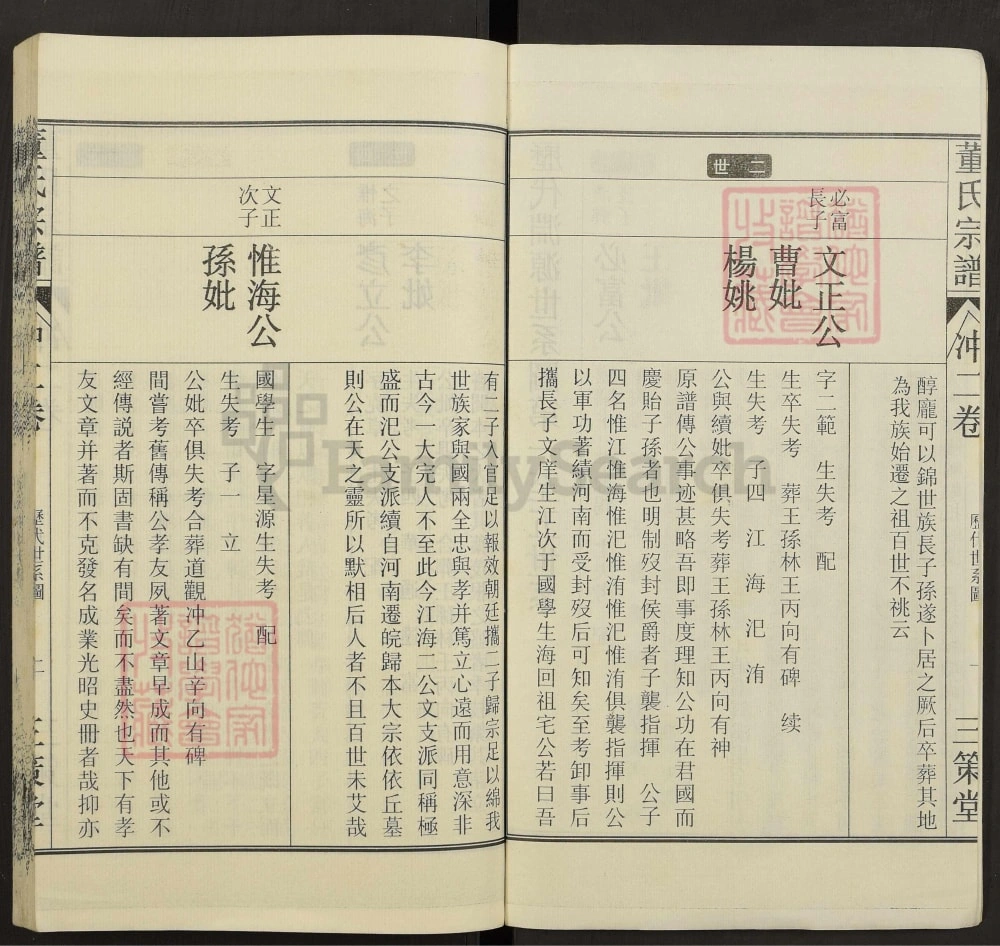 董氏宗譜
冲二卷
歷代世系圖
一
三策堂
醇龐可以錦世族長子孫遂卜居之厥后卒葬其地
為我族始遷之祖百世不祧云
二世
必富
長子
文正公
曹妣
楊姚
字二範 生失考 配
生卒失考 葬王孫林王丙向有碑 续
生失考 子四 江 海 汜 洧
公與續妣卒俱失考葬王孫林王丙向有神
原譜傳公事迹甚略吾即事度理知公功在君國而
慶貽子孫者也明制歿封侯爵者子襲指揮 公子
四名惟江惟海惟汜惟洧惟汜惟洧俱襲指揮則公
以軍功著績河南而受封歿后可知矣至考卸事后
攜長子文庠生江次于國學生海回祖宅公若曰吾
有二子入官足以報效朝廷攜二子歸宗足以綿我
世族家與國兩全忠與孝并篤立心遠而用意深非
古今 大完人不至此今江海二公文支派同稱極
盛而汜公支派續自河南遷皖歸本大宗依依丘墓
則公在天之靈所以默相后人者不且百世未艾哉
文正
次子
惟海公
孫妣
國學生 字星源生失考 配
生失考 子一 立
公妣卒俱失考合葬道觀冲乙山辛向有碑
間嘗考舊傳稱公孝友夙著文章早成而其他或不
經傳説者斯固書缺有間矣而不盡然也天下有孝
友文章并著而不克發名成業光昭史冊者哉抑亦
歷代世系圖
FamilySearch